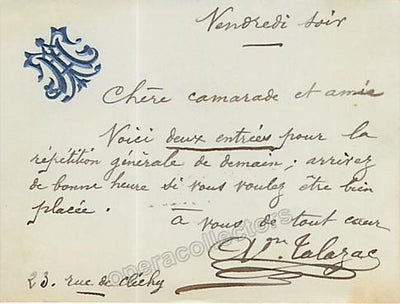 Vendredi soir
Chère camarade et amie
Voici deux entrées pour la
répétition générale de demain ; arrivez
de bonne heure si vous voulez être bien
placée.
à vous de tout cœur
Talazac
23. rue de Clichy
operacollectors